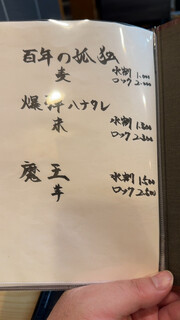 百年の孤独
麦 水割 1.000
ロック 2.000
爆弾ハナタレ
米 水割 1.800
ロック 2.800
魔王
芋 水割 1.500
ロック 2.500